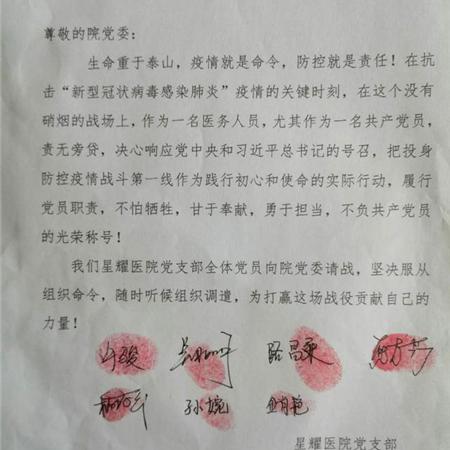 尊敬的院党委：
生命重于泰山，疫情就是命令，防控就是责任！在抗
击“新型冠状病毒感染肺炎”疫情的关键时刻，在这个没有
硝烟的战场上，作为一名医务人员，尤其作为一名共产党员，
责无旁贷，决心响应党中央和习近平总书记的号召，把投身
防控疫情战斗第一线作为践行初心和使命的实际行动，履行
党员职责，不怕牺牲，甘于奉献，勇于担当，不负共产党员
的光荣称号！
我们星耀医院党支部全体党员向院党委请战，坚决服从
组织命令，随时听候组织调遣，为打赢这场战役贡献自己的
力量！
路昌东
孙婉
星耀医院党支部